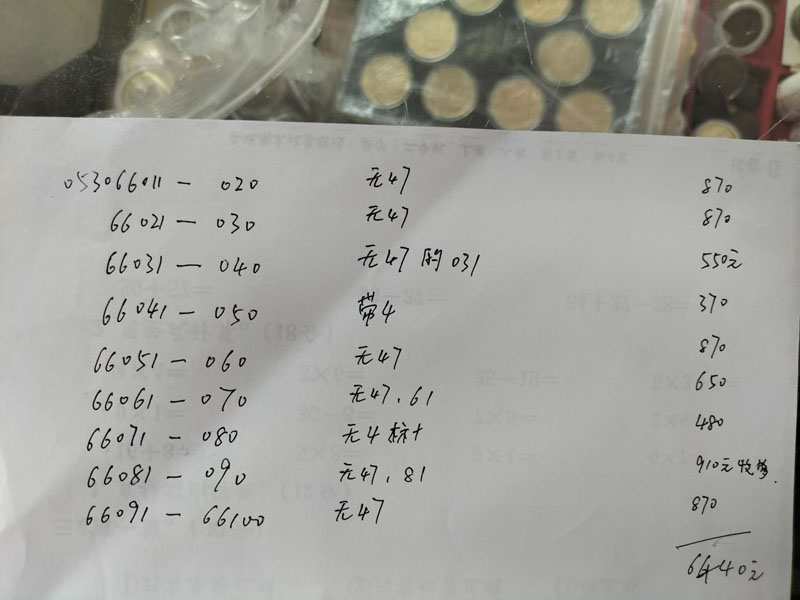 053066011 — 020 无47 870
66021 — 030 无47 870
66031 — 040 无47 的031 550元
66041 — 050 带4 370
66051 — 060 无47 870
66061 — 070 无47、61 650
66071 — 080 无4标十 480
66081 — 090 无47、81 910元
66091 — 66100 无47 870
6440元